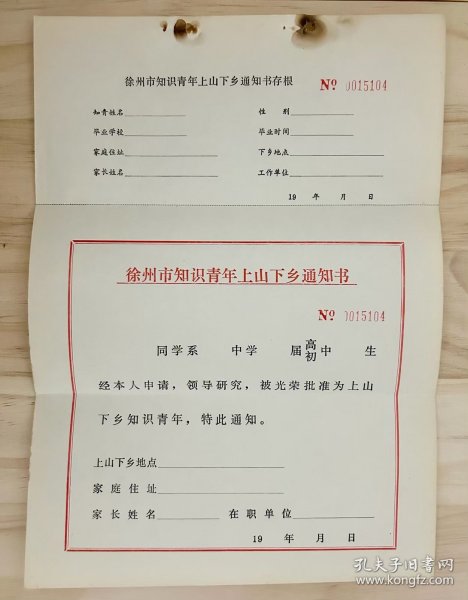 徐州市知识青年上山下乡通知书存根 № 0015104
知青姓名 性别
毕业学校 毕业时间
家庭住址 下乡地点
家长姓名 工作单位
19 年 月 日
徐州市知识青年上山下乡通知书
№ 0015104
同学系 中学 届高初中 生
经本人申请，领导研究，被光荣批准为上山
下乡知识青年，特此通知。
上山下乡地点
家庭住址
家长姓名 在职单位
19 年 月 日
孔夫子旧书网
www.kongfz.com